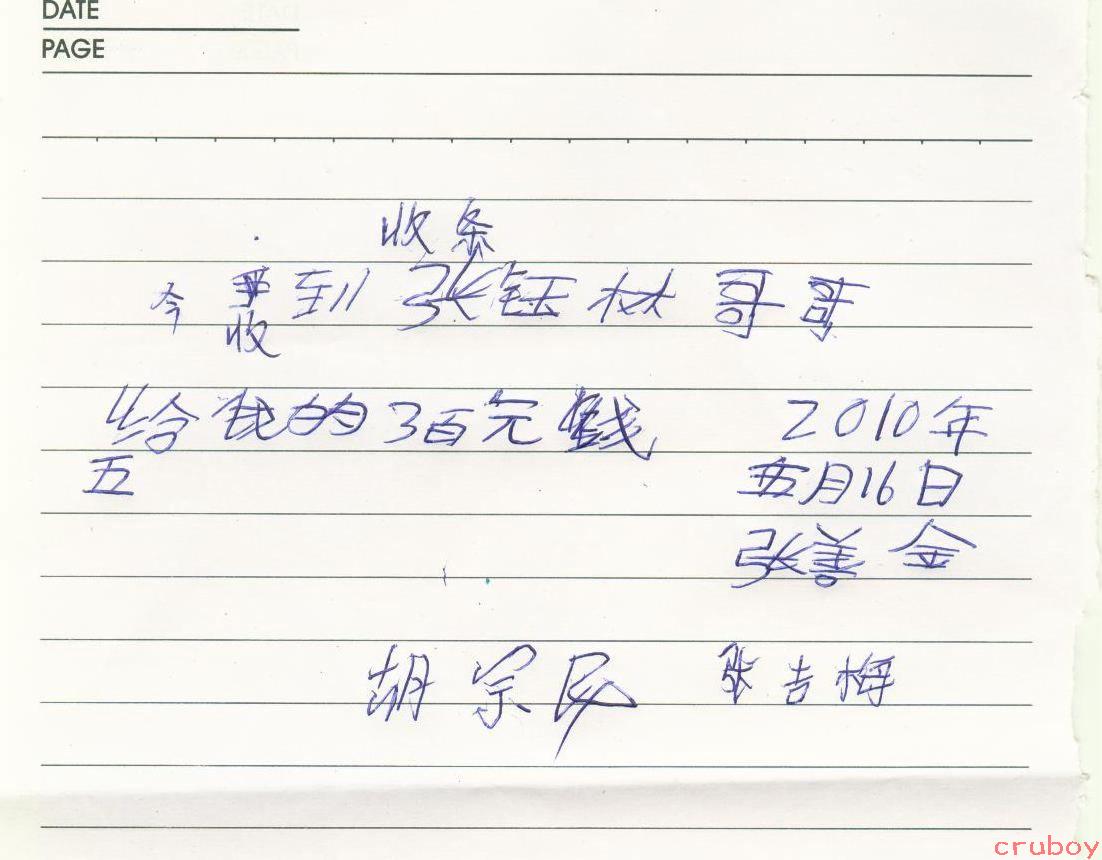 DATE
PAGE
收条
今收到张钰林哥哥
给钱的3百元钱 2010年
五 五月16日
张善金
胡宗民 张吉梅
cruboy